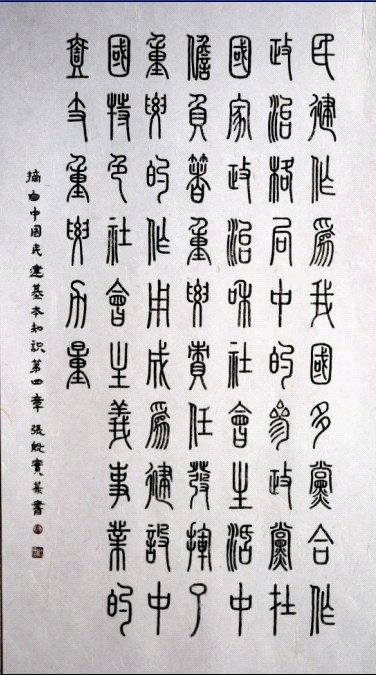 民建作為我國多黨合作
政治格局中的參政黨在
國家政治和社會生活中
擔負著重要責任發揮了
重要的作用成為建設中
國特色社會主義事業的
壹支重要力量
摘由中國民建基本知識第四章 張殿賓篆書